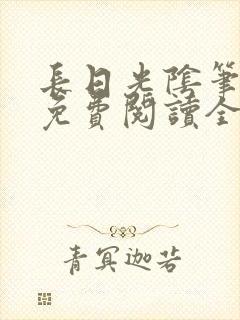 長日光陰筆
免費閱讀全
青冥迦若